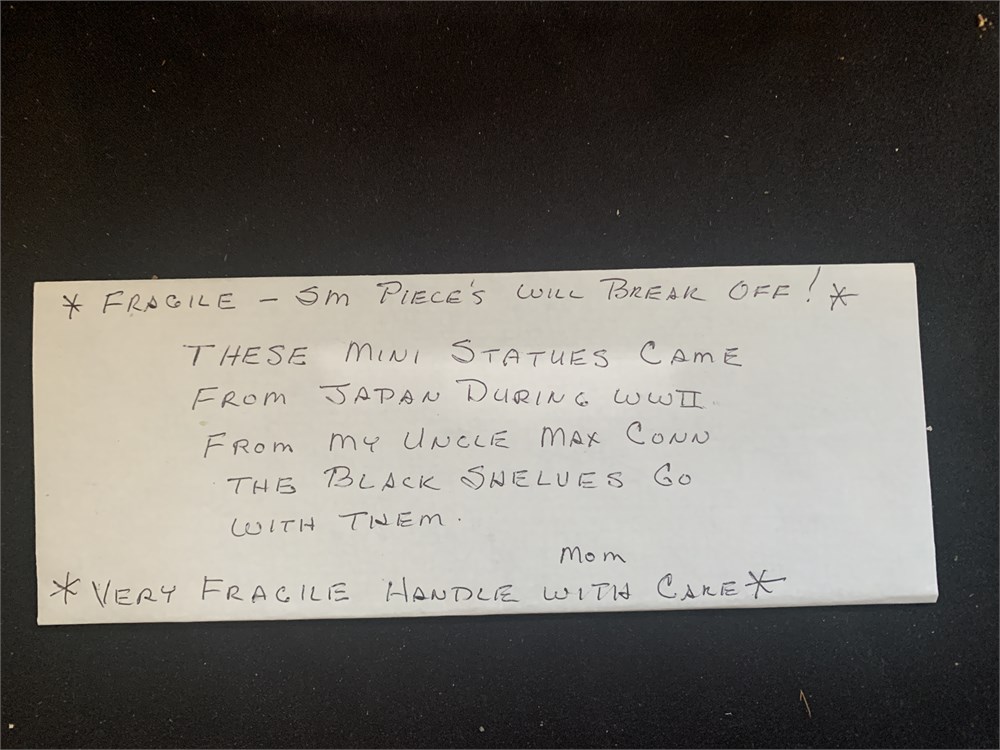 * FRAGILE - SM PIECE'S WILL BREAK OFF! *
THESE MINI STATUES CAME
FROM JAPAN DURING WWII
FROM MY UNCLE MAX CONN
THE BLACK SHELVES GO
WITH THEM.
MOM
* VERY FRAGILE HANDLE WITH CARE *